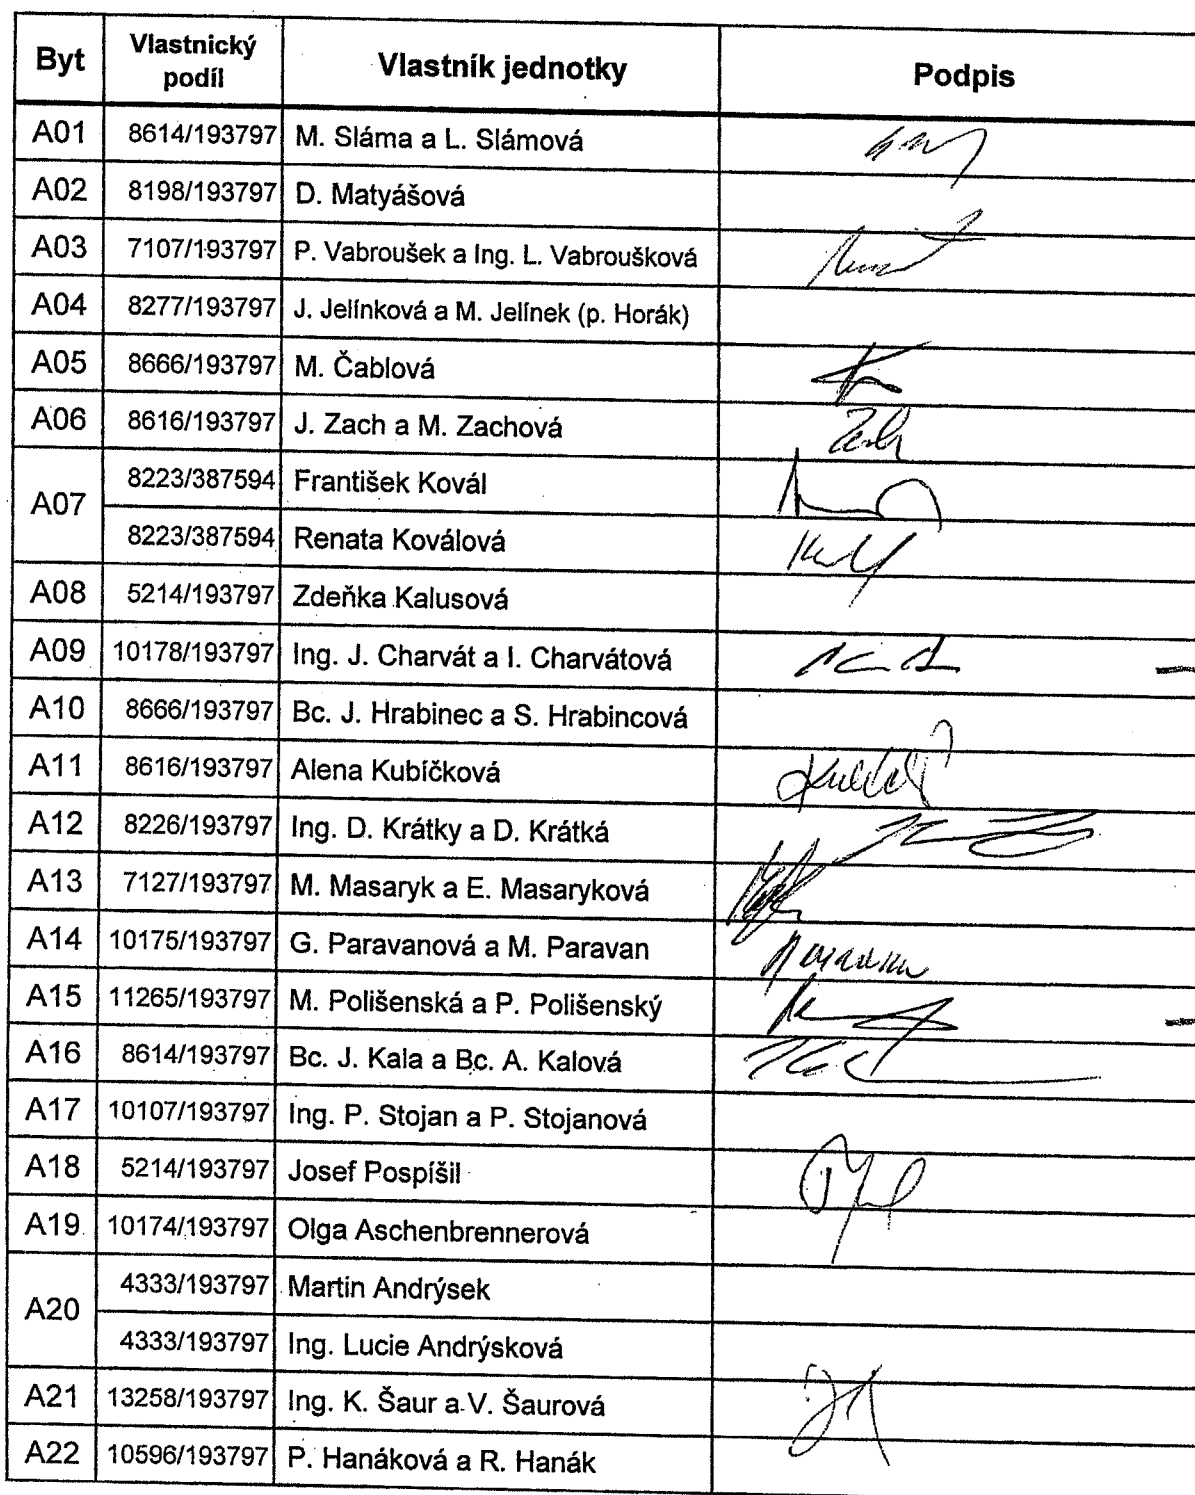 Byt Vlastnický podíl Vlastník jednotky Podpis
A01 8614/193797 M. Sláma a L. Slámová
A02 8198/193797 D. Matyášová
A03 7107/193797 P. Vabroušek a Ing. L. Vabroušková
A04 8277/193797 J. Jelínková a M. Jelínek (p. Horák)
A05 8666/193797 M. Čablová
A06 8616/193797 J. Zach a M. Zachová
A07 8223/387594 František Kovál
8223/387594 Renata Koválová
A08 5214/193797 Zdeňka Kalusová
A09 10178/193797 Ing. J. Charvát a I. Charvátová
A10 8666/193797 Bc. J. Hrabinec a S. Hrabincová
A11 8616/193797 Alena Kubíčková
A12 8226/193797 Ing. D. Krátky a D. Krátká
A13 7127/193797 M. Masaryk a E. Masaryková
A14 10175/193797 G. Paravanová a M. Paravan
A15 11265/193797 M. Polišenská a P. Polišenský
A16 8614/193797 Bc. J. Kala a Bc. A. Kalová
A17 10107/193797 Ing. P. Stojan a P. Stojanová
A18 5214/193797 Josef Pospíšil
A19 10174/193797 Olga Aschenbrennerová
A20 4333/193797 Martin Andrýsek
4333/193797 Ing. Lucie Andrýsková
A21 13258/193797 Ing. K. Šaur a V. Šaurová
A22 10596/193797 P. Hanáková a R. Hanák